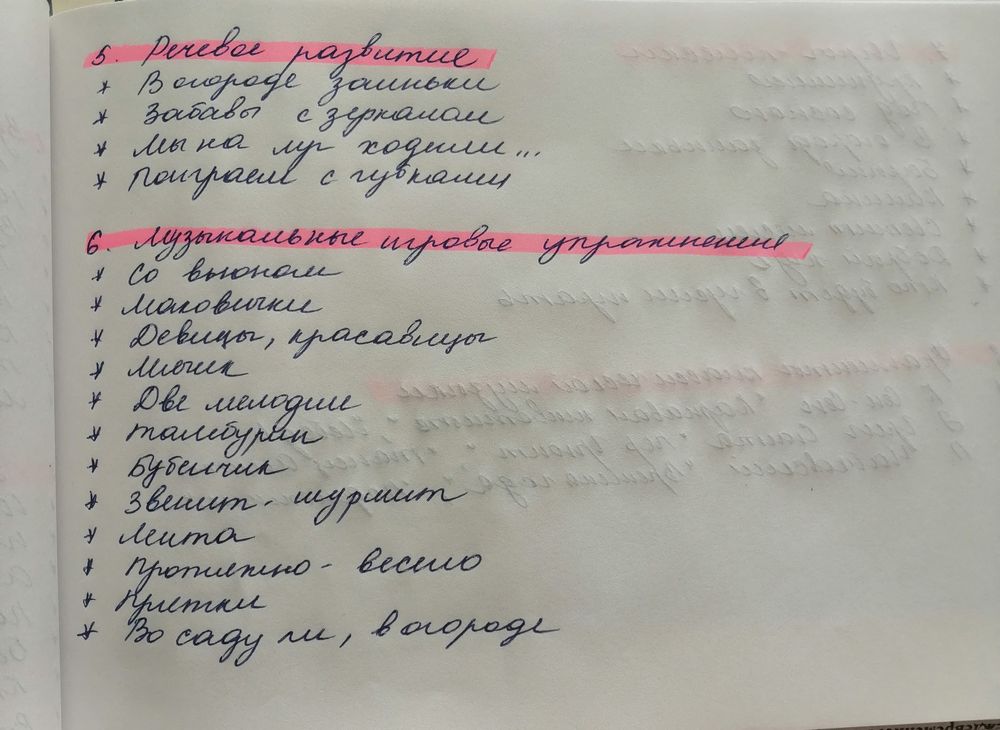 5. Речевое развитие
* В огороде заиньки
* Забавы с зеркалом
* Мы на луг ходили...
* Поиграем с губками
6. Музыкальные игровые упражнения
* Со вьюном
* Маковички
* Девицы, красавицы
* Мячик
* Две мелодии
* Тамбурин
* Бубенчик
* Звенит - шурмит
* Лента
* Протяжно - весело
* Прятки
* Во саду ли, в огороде